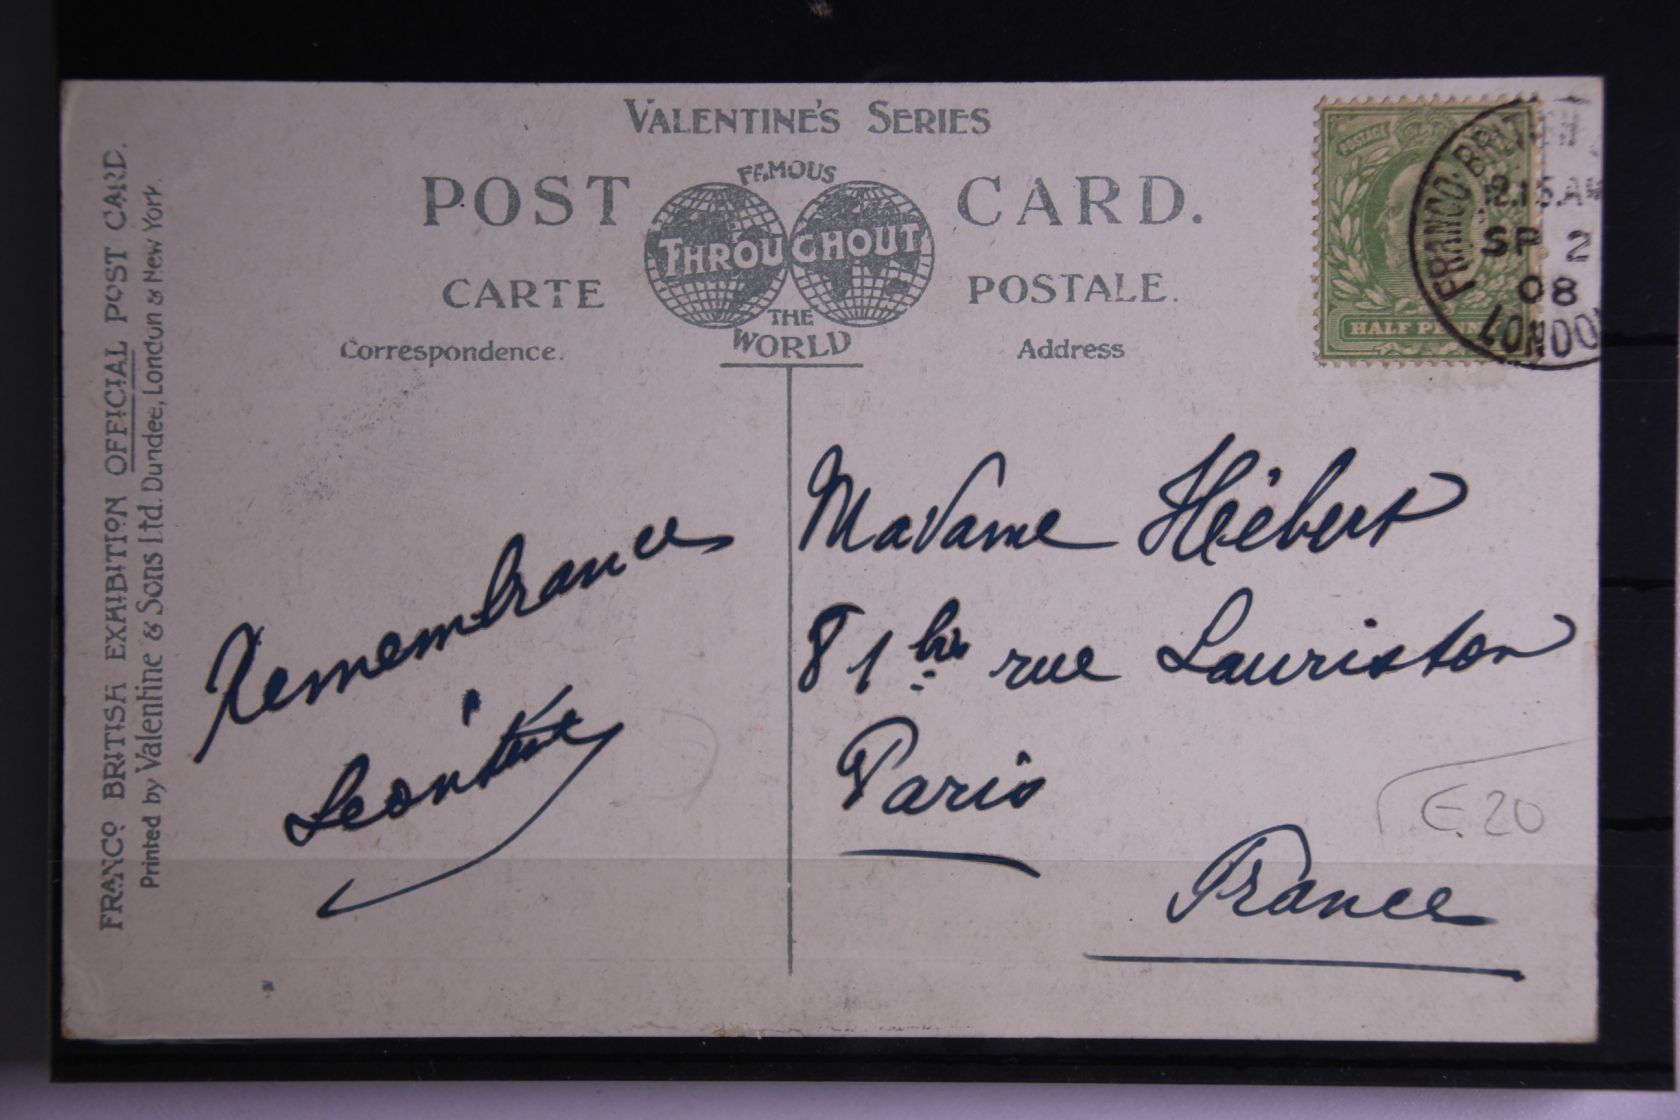 VALENTINE'S SERIES
POST CARD.
FAMOUS
THROUGHOUT
THE
WORLD
CARTE POSTALE.
Correspondence.
Address
FRANCO BRITISH EXHIBITION OFFICIAL POST CARD.
Printed by Valentine & Sons Ltd. Dundee, London & New York.
POSTAGE
HALF PENN
FRANCO. BRIT
12.15.AM
SP 2
08
LONDON
Remembrance
Léontine
Madame Hébert
81 bis rue Lauriston
Paris
France
E20